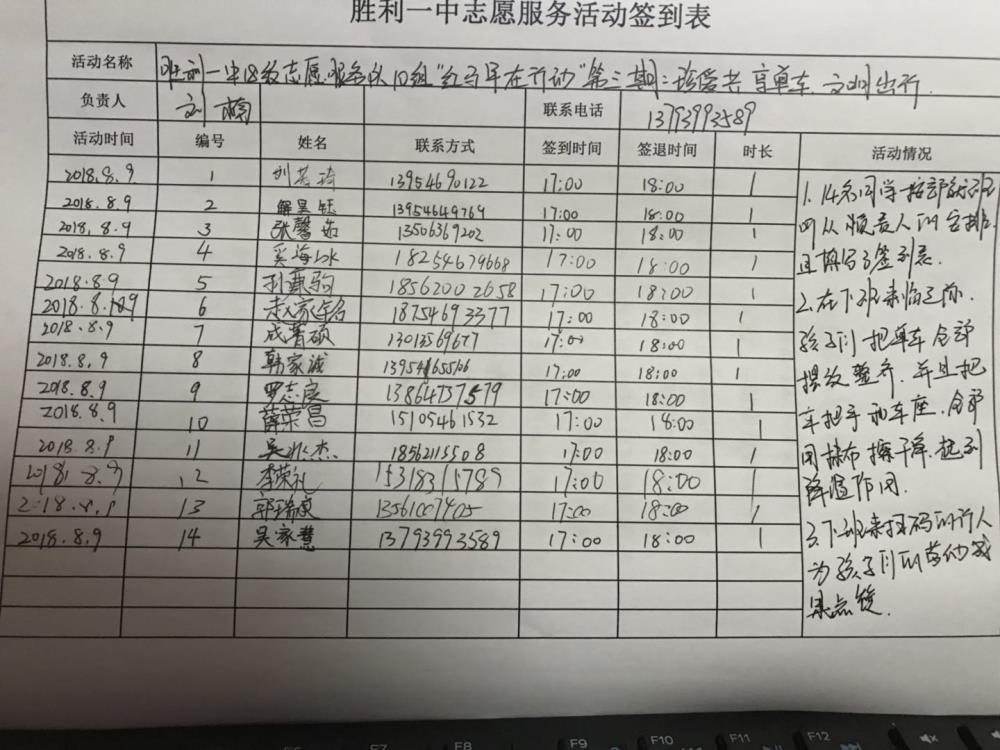 胜利一中志愿服务活动签到表
活动名称 胜利一中18级志愿服务队10组"红马甲在行动"第三期:珍爱共享单车,文明出行.
负责人 刘 联系电话 13793993589
活动时间 编号 姓名 联系方式 签到时间 签退时间 时长 活动情况
2018.8.9 1 刘 13954690122 17:00 18:00 1
2018.8.9 2 解昊钰 13954649769 17:00 18:00 1
2018.8.9 3 张馨茹 13506369202 17:00 18:00 1
2018.8.9 4 奚海 18254679668 17:00 18:00 1
2018.8.9 5 孙甄驹 18562002658 17:00 18:00 1
2018.8.9 6 18754693377 17:00 18:00 1
2018.8.9 7 成菁硕 13013569677 17:00 18:00 1
2018.8.9 8 韩家诚 17:00 18:00 1
2018.8.9 9 罗志宸 13864737579 17:00 18:00 1
2018.8.9 10 薛荣昌 15105461532 17:00 18:00 1
2018.8.9 11 吴 杰 18562115508 17:00 18:00 1
2018.8.9 12 李荣礼 15318315789 17:00 18:00 1
2018.8.9 13 郭瑞 13561007405 17:00 18:00 1
2018.8.9 14 吴家慧 13793993589 17:00 18:00 1
1.14名同学按部就班
四从负责人的安排.
且填写了签到表.
2.在下班来临之际.
孩子们把单车全部
摆放整齐.并且把
车把手和车座.全部
用抹布擦干净.起到
降温作用.
3.下班来扫码的行人
为孩子们的劳动成
果点赞.
F7
F8
F9
F10
F11
F12